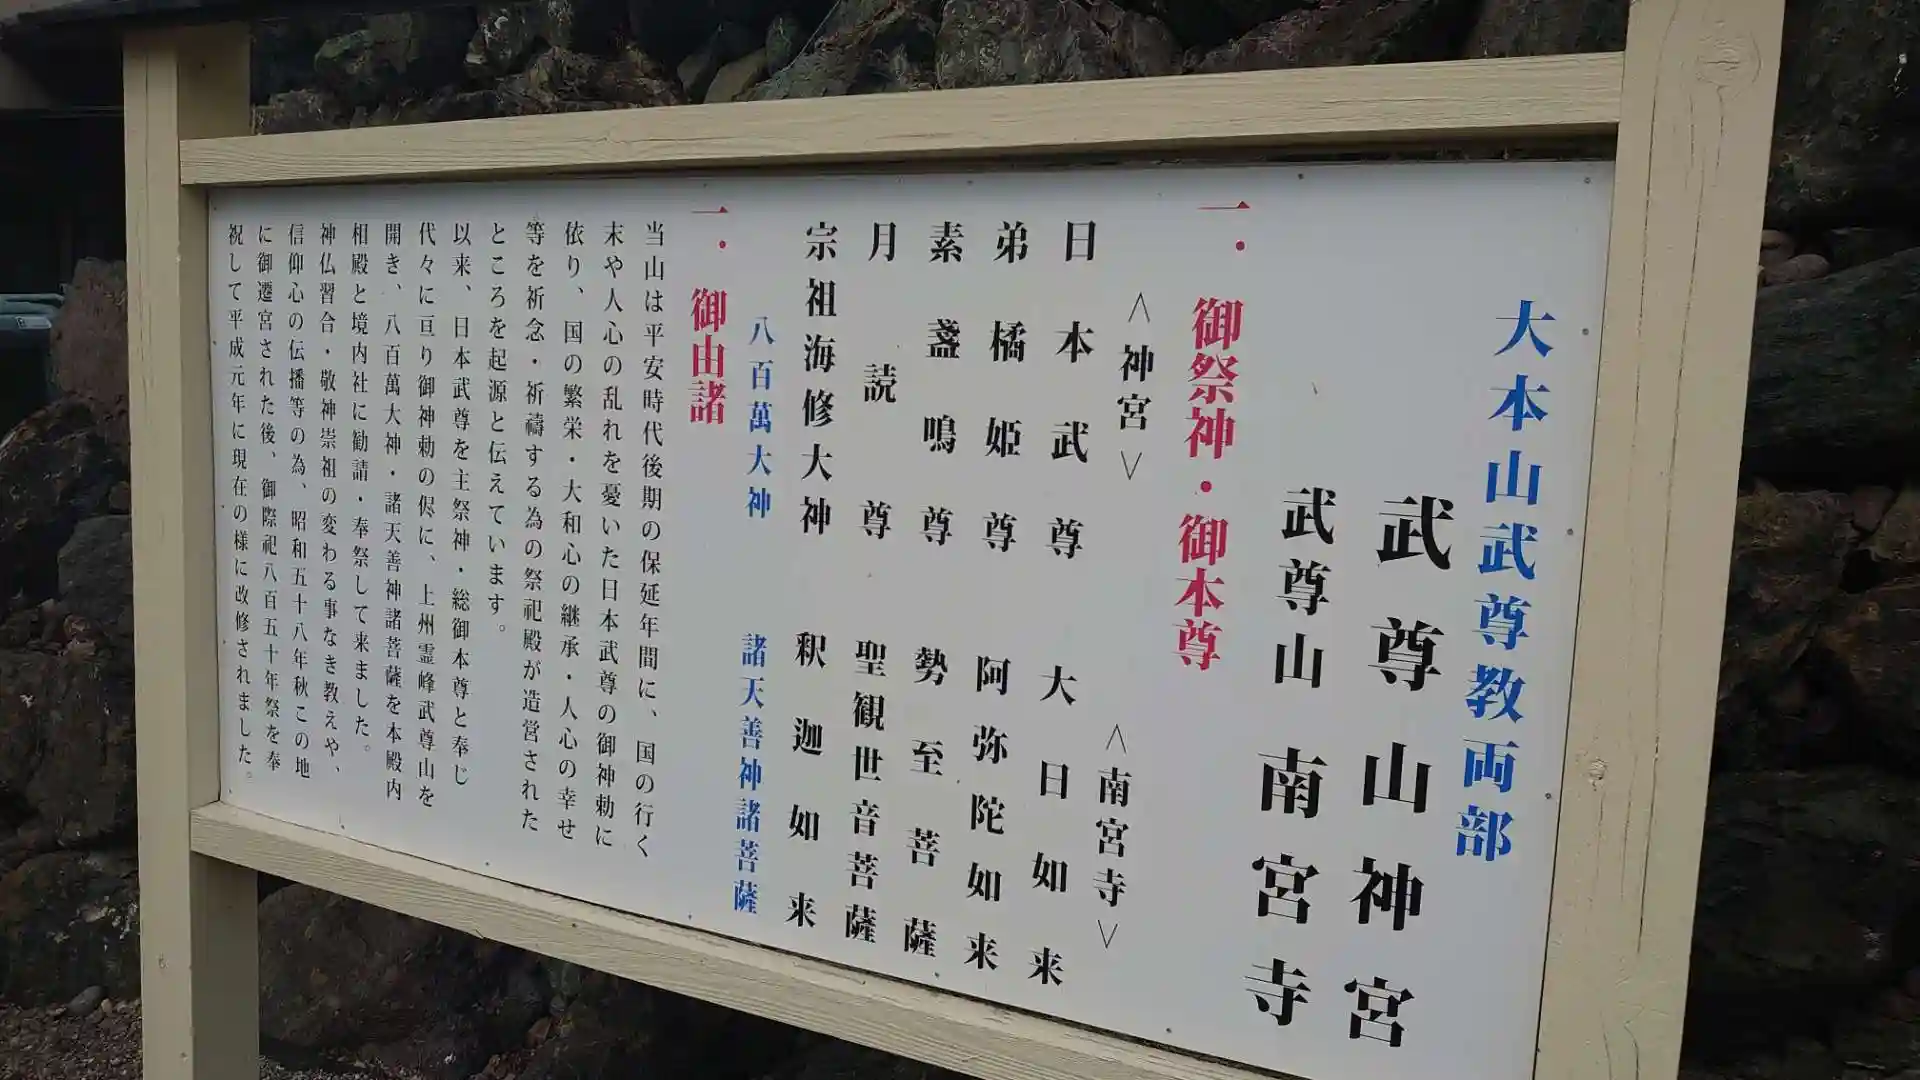 大本山武尊教両部
武尊山神宮
武尊山 南宮寺
一．御祭神・御本尊
＜神宮＞
＜南宮寺＞
日本武尊 大日如来
弟橘姫尊 阿弥陀如来
素盞鳴尊 勢至菩薩
月読尊 聖観世音菩薩
宗祖海修大神 釈迦如来
八百萬大神 諸天善神諸菩薩
一．御由諸
当山は平安時代後期の保延年間に、国の行く
末や人心の乱れを憂いた日本武尊の御神勅に
依り、国の繁栄・大和心の継承・人心の幸せ
等を祈念・祈禱する為の祭祀殿が造営された
ところを起源と伝えています。
以来、日本武尊を主祭神・総御本尊と奉じ
代々に亘り御神勅の侭に、上州霊峰武尊山を
開き、八百萬大神・諸天善神諸菩薩を本殿内
相殿と境内社に勧請・奉祭して来ました。
神仏習合・敬神崇祖の変わる事なき教えや、
信仰心の伝播等の為、昭和五十八年秋この地
に御遷宮された後、御際祀八百五十年祭を奉
祝して平成元年に現在の様に改修されました。